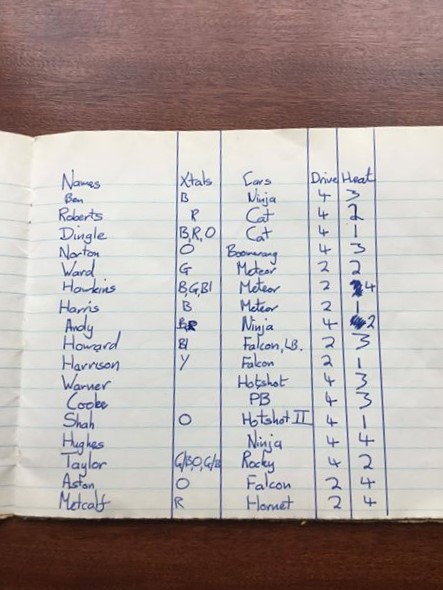 Names Xtals Cars Drive Heat
Ben B Ninja 4 3
Roberts R Cat 4 2
Dingle B,R,O Cat 4 1
Norton O Boomerang 4 3
Ward G Meteor 2 2
Hawkins B,G,Bl Meteor 2 4
Harris B Meteor 2 1
Andy R Ninja 4 2
Howard Bl Falcon, LB. 2 3
Harrison Y Falcon 2 1
Warner Hotshot 4 3
Cooke PB 4 3
Shah O Hotshot II 4 1
Hughes Ninja 4 4
Taylor Rocky 4 2
Aston O Falcon 2 4
Metcalf R Hornet 2 4